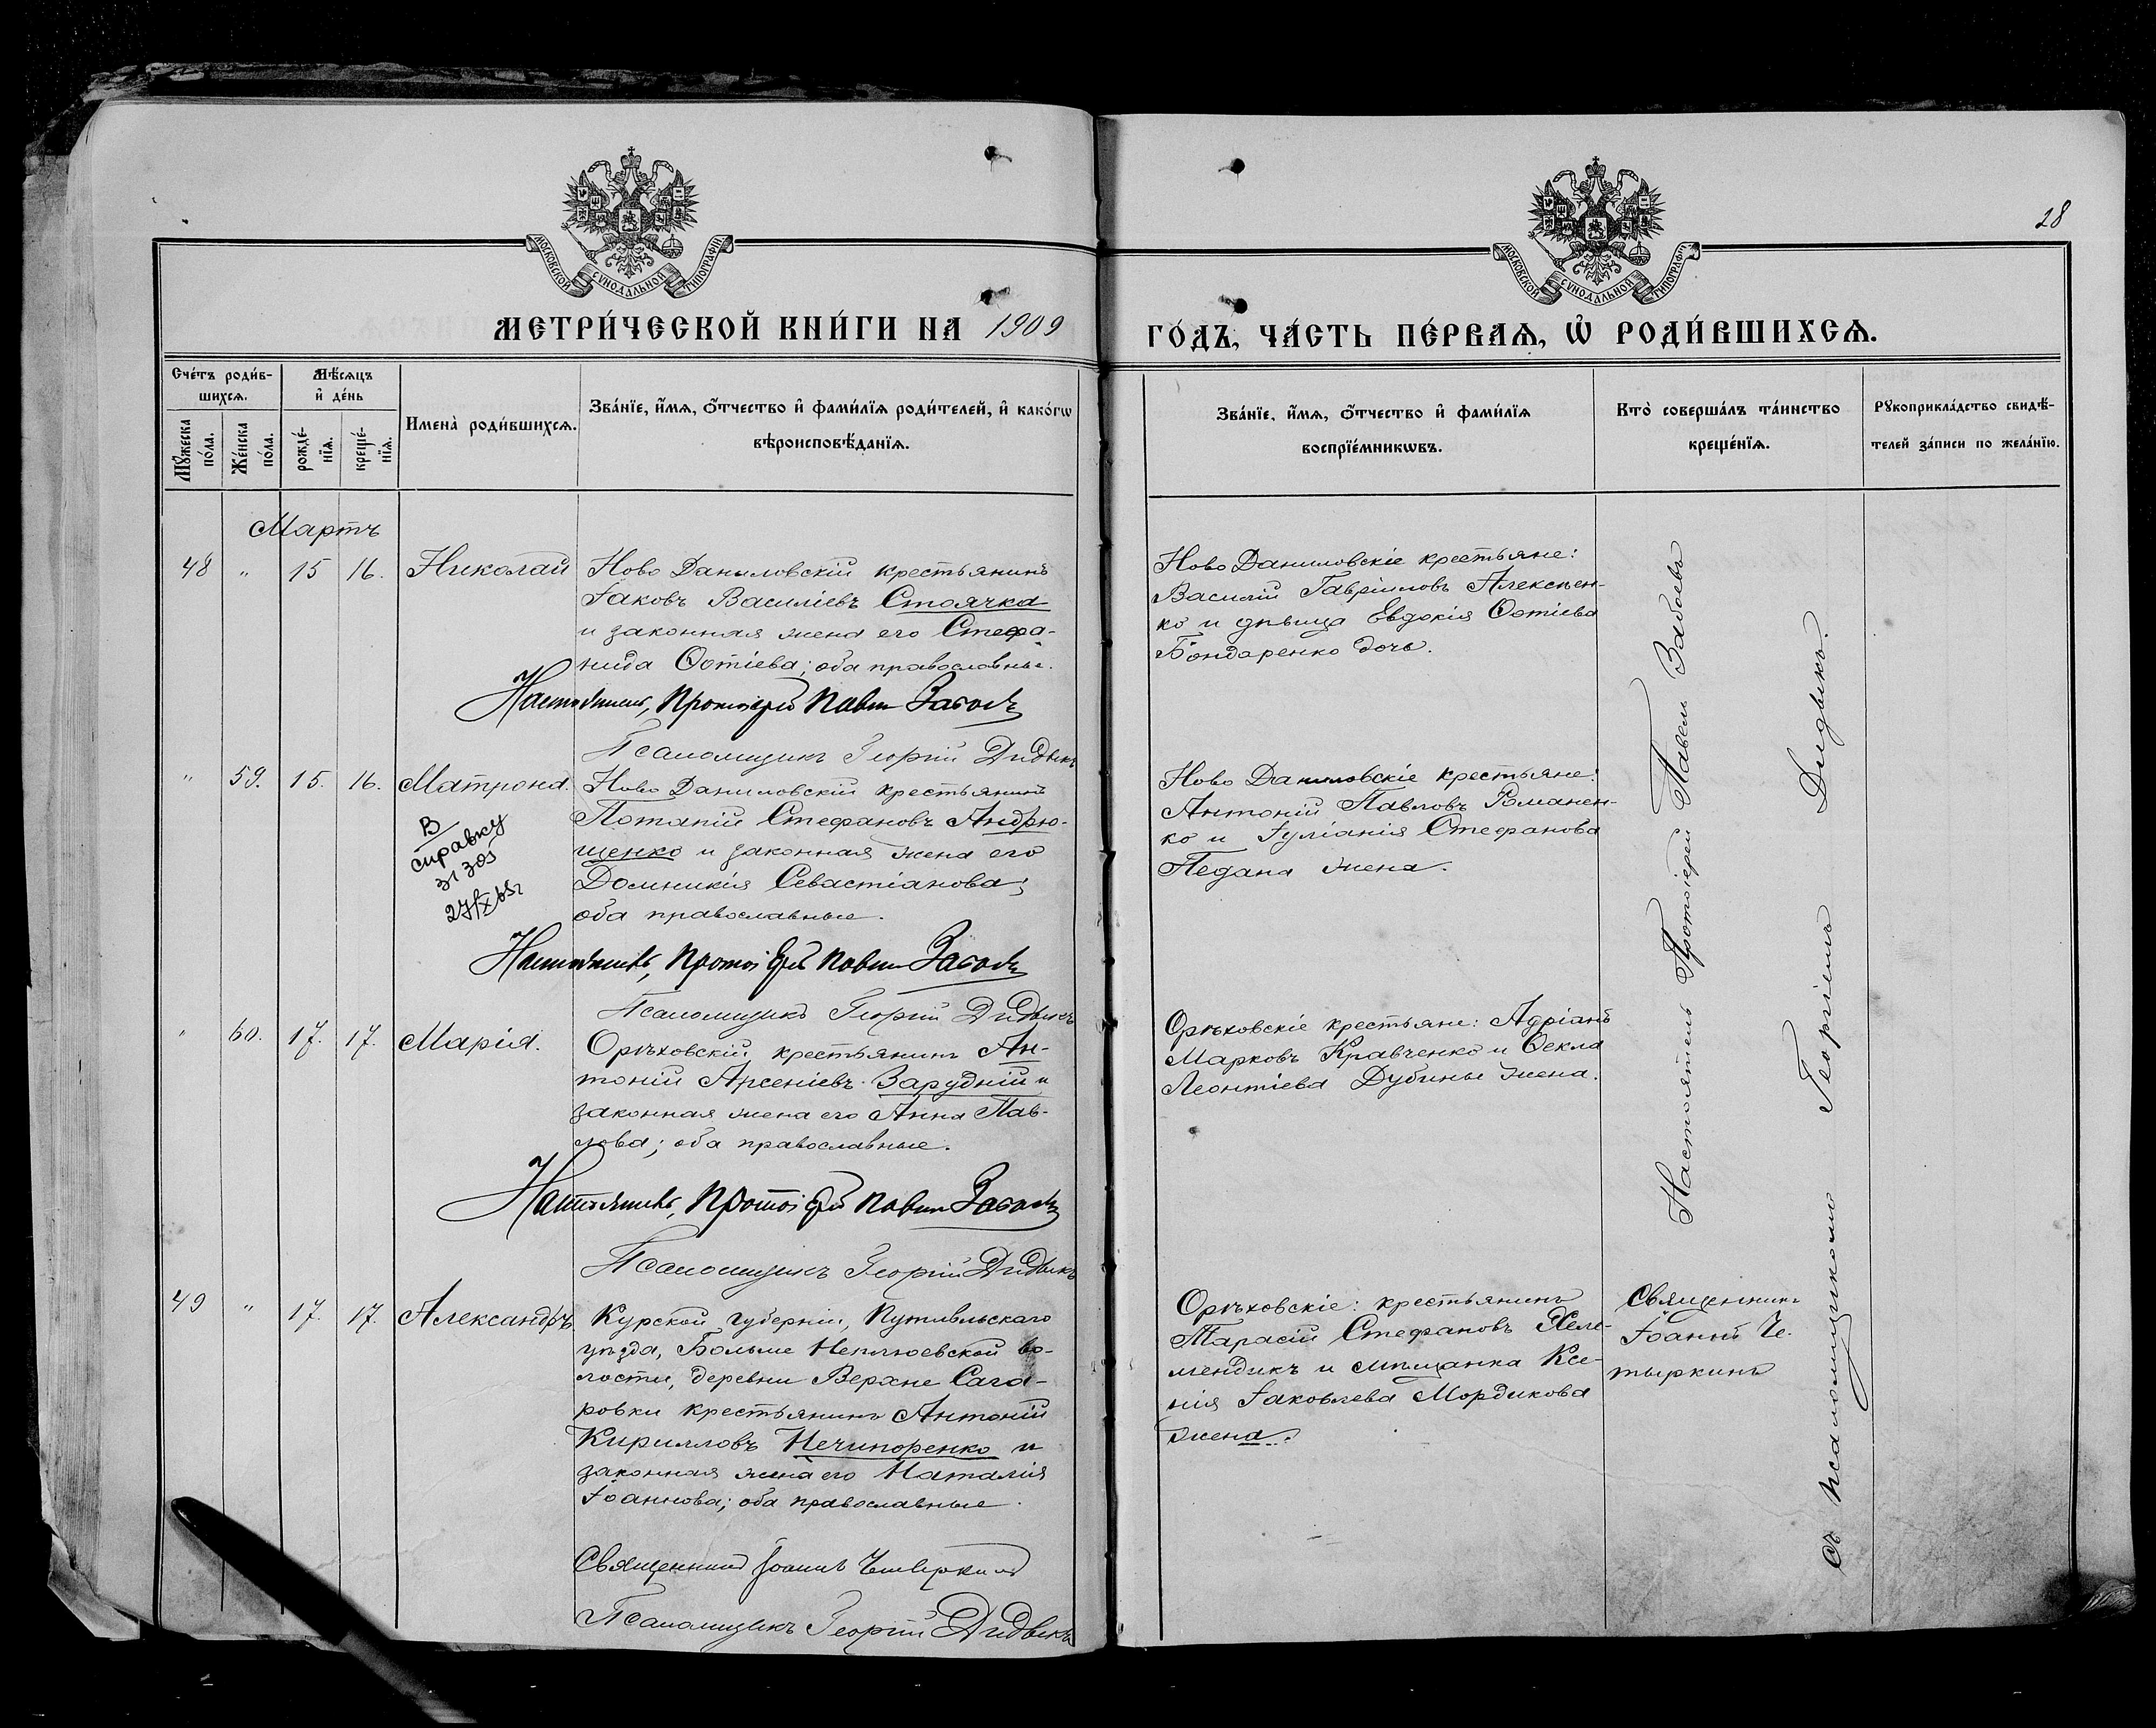 28
МОСКОВСКОЙ СѴНОДАЛЬНОЙ ТИПОГРАФІИ
МОСКОВСКОЙ СѴНОДАЛЬНОЙ ТИПОГРАФІИ
МЕТРИ́ЧЕСКОЙ КНИ́ГИ НА 1909
ГО́ДЪ, ЧА́СТЬ ПЕ́РВАѦ, Ѽ РОДИ́ВШИХСѦ.
Сче́тъ роди́в-
шихсѧ.
Мꙋ́жеска по́ла.
Же́нска по́ла.
Мѣ́сѧцъ
и҆ де́нь
рожде́-
нїѧ.
креще́-
нїѧ.
Имена̀ роди́вшихсѧ.
Зва́нїе, и҆́мѧ, ѻ҆́тчество и҆ фами́лїѧ роди́телей, и҆ како́гѡ
вѣроисповѣ́данїѧ.
Зва́нїе, и҆́мѧ, ѻ҆́тчество и҆ фами́лїѧ
воспрїе́мникѡвъ.
Кто̀ соверша́лъ та́инство
креще́нїѧ.
Рꙋкоприкла́дство свидѣ́-
телей за́писи по жела́нїю.
Мартъ
48 " 15 16. Николай
Ново Даниловскій крестьянинъ
Іаковъ Василіевъ Стоячка
и законная жена его Стефа-
нида Ѳотіева; оба православные.
Настоятель, Протоіерей Павелъ Забоевъ
Псаломщикъ Георгій Дидыкъ
Ново Даниловскіе крестьяне:
Василій Гавріиловъ Алексѣен-
ко и дѣвица Евдокія Ѳотіева
Бондаренко дочь.
" 59. 15. 16. Матрона.
В
справку
27/X 65г
Ново Даниловскій крестьянинъ
Потапій Стефановъ Андрю-
щенко и законная жена его
Домникія Севастіанова;
оба православные.
Настоятель, Протоіерей Павелъ Забоевъ
Псаломщикъ Георгій Дидыкъ
Ново Даниловскіе крестьяне:
Антоній Павловъ Романен-
ко и Іуліанія Стефанова
Педана жена.
" 60. 17. 17. Марія.
Орѣховскій крестьянинъ Ан-
тоній Арсеніевъ Зарудній и
законная жена его Анна Пав-
лова; оба православные.
Настоятель, Протоіерей Павелъ Забоевъ
Псаломщикъ Георгій Дидыкъ
Орѣховскіе крестьяне: Адріанъ
Марковъ Кравченко и Ѳекла
Леонтіева Дубины жена.
49 " 17. 17. Александръ
Курской губерніи, Путивльскаго
уѣзда, Больше Неплюевской во-
лости, деревни Верхне Сага-
ровки крестьянинъ Антоній
Кирилловъ Нечипоренко и
законная жена его Наталія
Іоаннова; оба православные.
Священникъ Іоаннъ Четыркинъ
Псаломщикъ Георгій Дидыкъ
Орѣховскіе: крестьянинъ
Тарасій Стефановъ Желе-
мендикъ и мѣщанка Ксе-
нія Іаковлева Мордикова
жена.
Священникъ
Іоаннъ Че-
тыркинъ
Настоятель Протоіерей Павелъ Забоевъ
Съ псаломщикомъ Георгіемъ Дидыкъ.